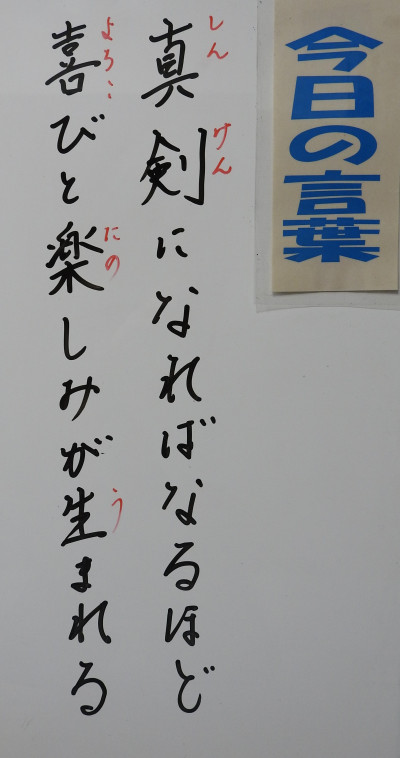 今日の言葉
真剣になればなるほど
しんけん
喜びと楽しみが生まれる
よろこ
たの
う